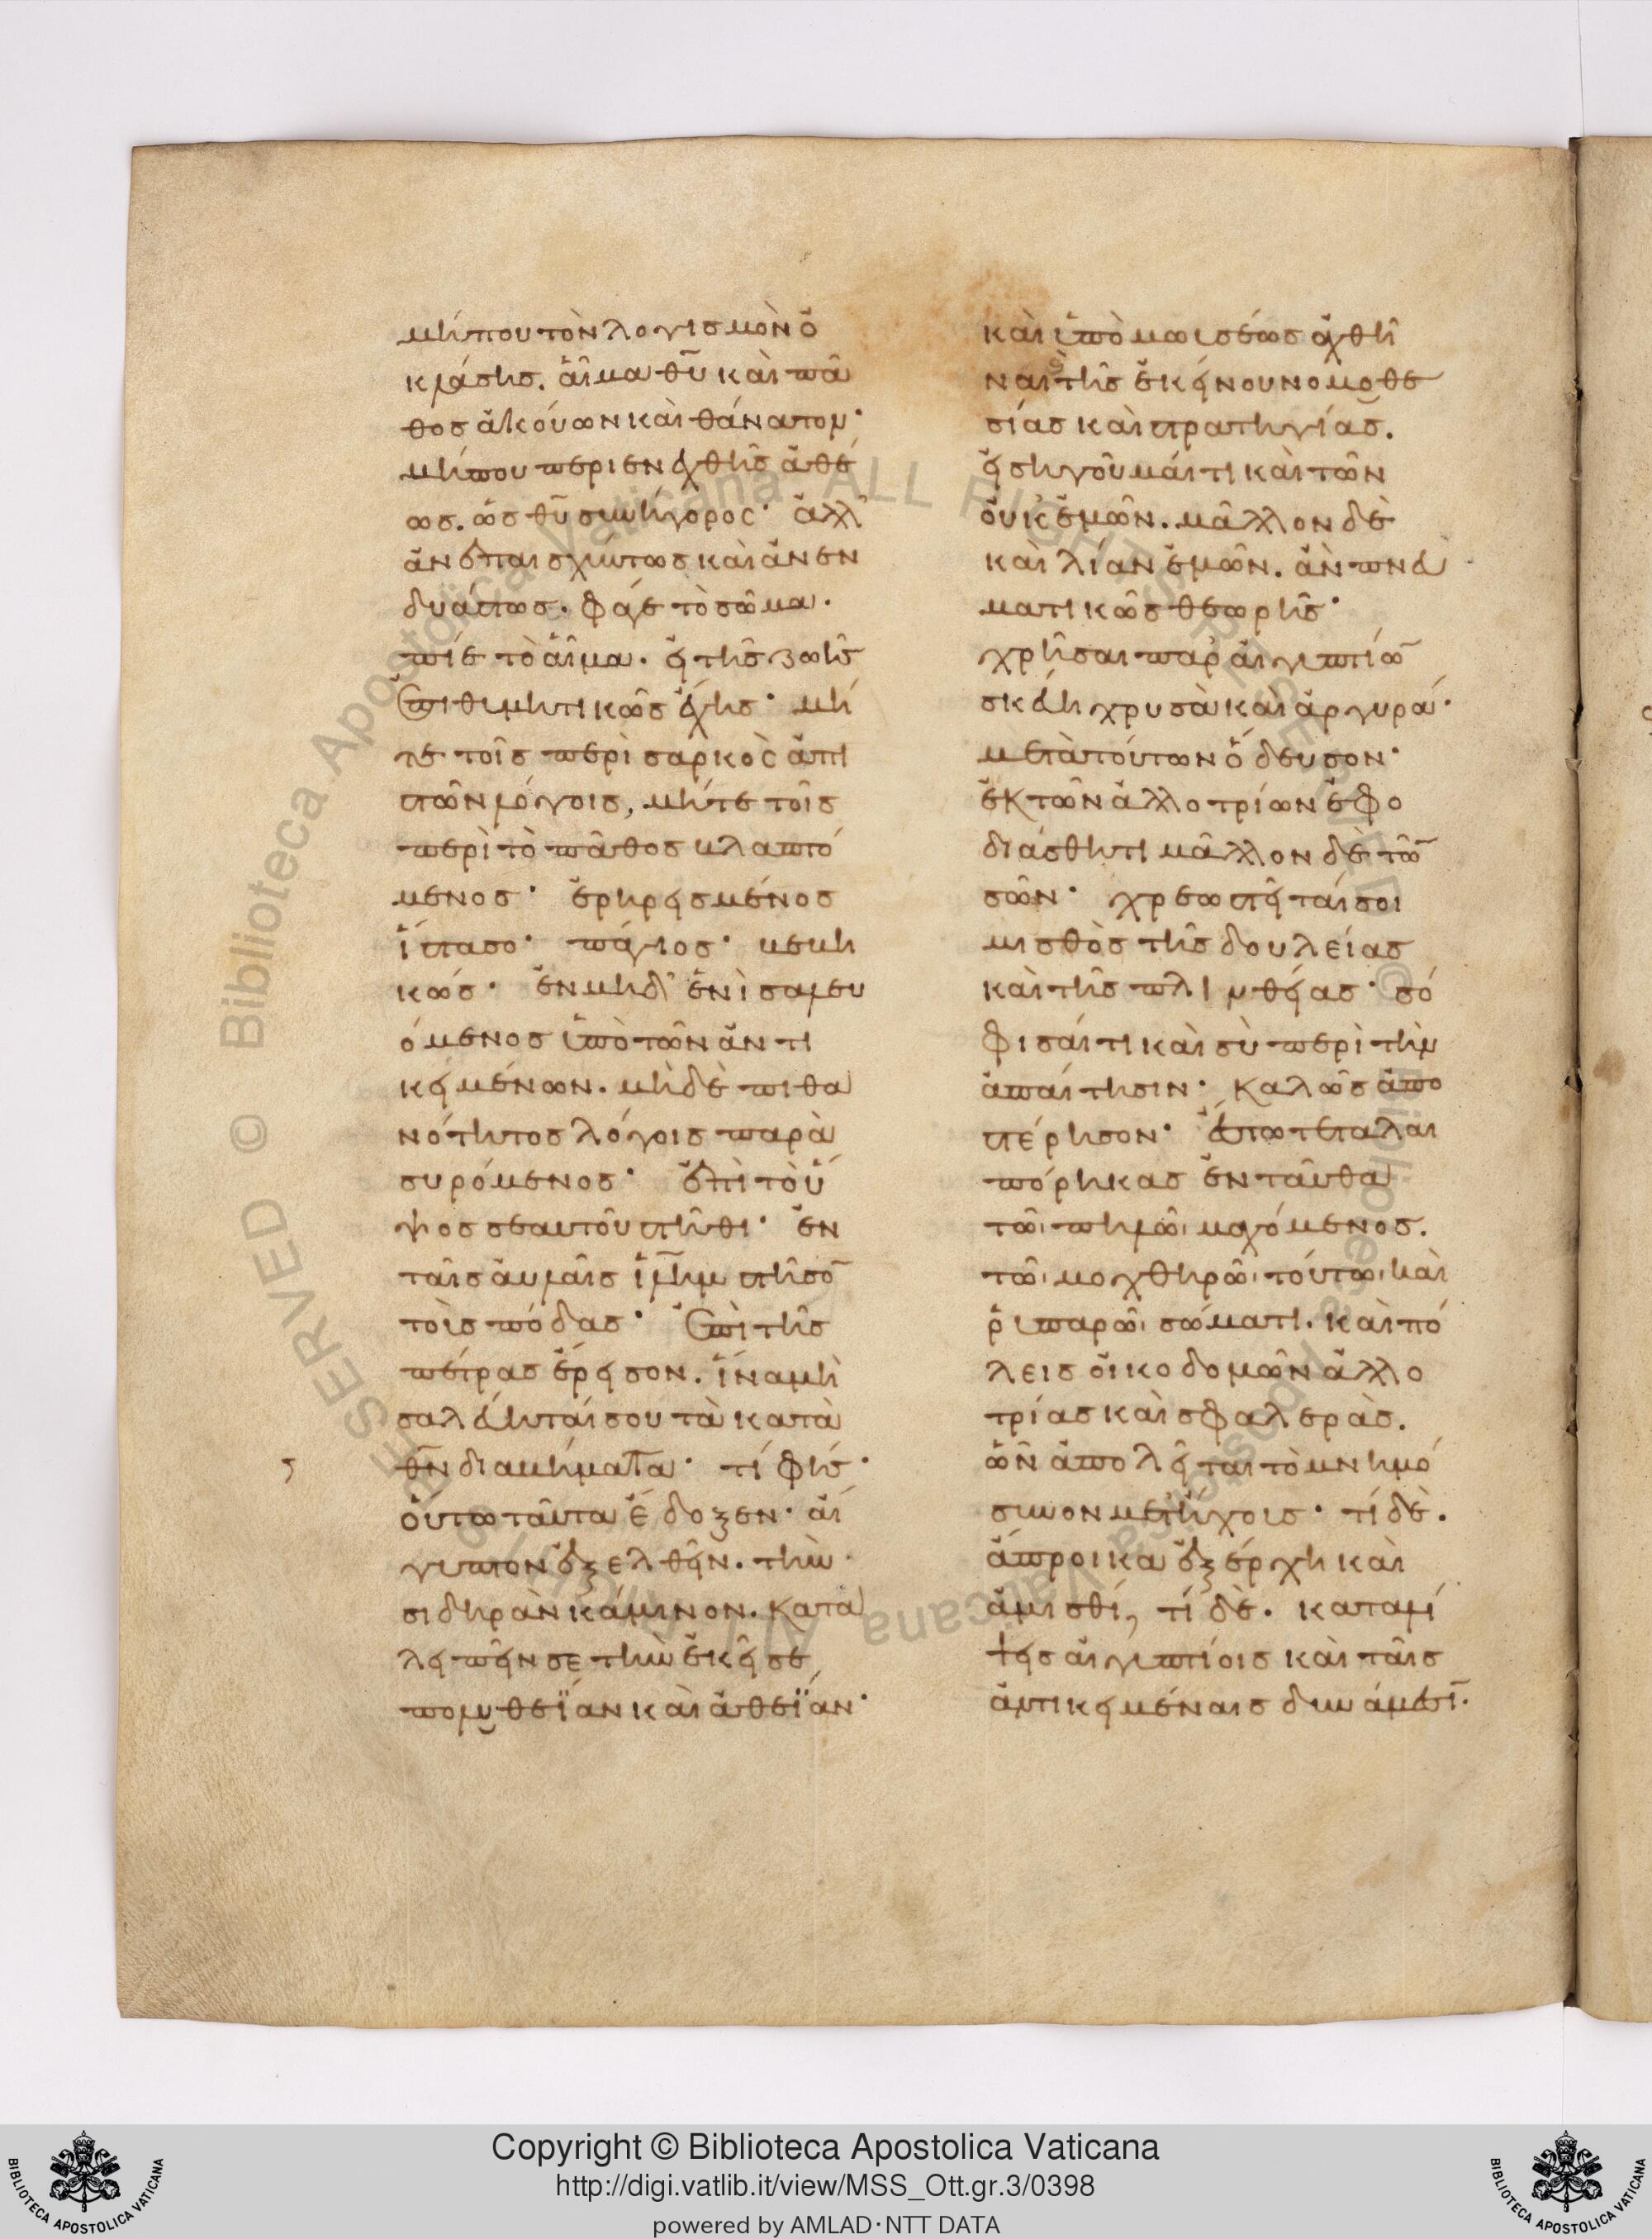 μήπου τὸν λογισμὸν ὀ
κλάσης. αἷμα θῡ καὶ πά
θος ἀκούων καὶ θάνατον·
μήπου περιενεχθῆς ἀθέ
ως. ὡς θῡ συνήγορος· ἀλλ'
ἀνεπαισχύντως καὶ ἀνεν
δυάστως. φάγε τὸ σῶμα.
πίε τὸ αἷμα. εἰ τῆς ζωῆς
ἐπιθυμητικῶς ἔχεις· μή
τε τοῖς περὶ σαρκὸς ἀπι
στῶν λόγοις, μήτε τοῖς
περὶ τὸ πάθος βλαπτό
μενος· ἐρηρεισμένος
ἵστασο· πάγιος· βεβη
κώς· ἐν μηδενὶ σαλευ
όμενος ὑπὸ τῶν ἀντι
κειμένων. μὴ δὲ πιθα
νότητος λόγοις παρα
συρόμενος· ἐπὶ τὸ ὕ
ψος σεαυτοῦ στῆθι· ἐν
ταῖς αὐλαῖς ἱλῆμ στῆσο̄
τοὺς πόδας· ἐπὶ τῆς
πέτρας ἔρεισον. ἵνα μὴ
σαλεύηταί σου τὰ κατὰ
θν̄ διαβήματα· τί φῄς·
οὕτω ταῦτα ἔδοξεν· αἰ
γυπτον ἐξελθεῖν. τὴν
σιδηρὰν κάμινον. κατα
λειπεῖν σε τὴν ἐκεῖσε
πολυθεΐαν καὶ ἀθεΐαν·
καὶ ὑπὸ μωισέως ἀχθῆ
ναι τῆς ἐκείνου νομοθε
σίας καὶ στρατηγίας.
εἰσηγοῦμαί τι καὶ τῶν
οὐκ ἐμῶν. μᾶλλον δὲ
καὶ λίαν ἐμῶν. ἂν πνευ
ματικῶς θεωρῆς·
χρῆσαι παρ' αἰγυπτίω̄
σκεύη χρυσᾶ καὶ ἀργυρᾶ·
μετὰ τούτων ὅδευσον·
ἐκ τῶν ἀλλοτρίων ἐφο
διάσθητι μᾶλλον δὲ τῶ̄
σῶν· χρεωστεῖταί σοι
μισθὸς τῆς δουλείας
καὶ τῆς πλινθείας· σό
φισαί τι καὶ σὺ περὶ τὴν
ἀπαίτησιν· καλῶς ἀπο
στέρησον· ἔστω τεταλαι
πώρηκας ἐνταῦθα
τῶι πηλῶι μαχόμενος.
τῶι μοχθηρῶι τούτωι καὶ
ῥυπαρῶι σώματι. καὶ πό
λεις οἰκοδομῶν ἀλλο
τρίας καὶ σφαλεράς.
ὧν ἀπολεῖται τὸ μνημό
συνον μετ' ἤχοις· τί δὲ.
ἄπροικα ἐξέρχη καὶ
ἀμισθί, τί δέ. καταλεί
ψεις αἰγυπτίοις καὶ ταῖς
ἀντικειμέναις δυνάμεσῑ·
Copyright © Biblioteca Apostolica Vaticana
http://digi.vatlib.it/view/MSS_Ott.gr.3/0398
powered by AMLAD·NTT DATA
BIBLIOTECA APOSTOLICA VATICANA
BIBLIOTECA APOSTOLICA VATICANA